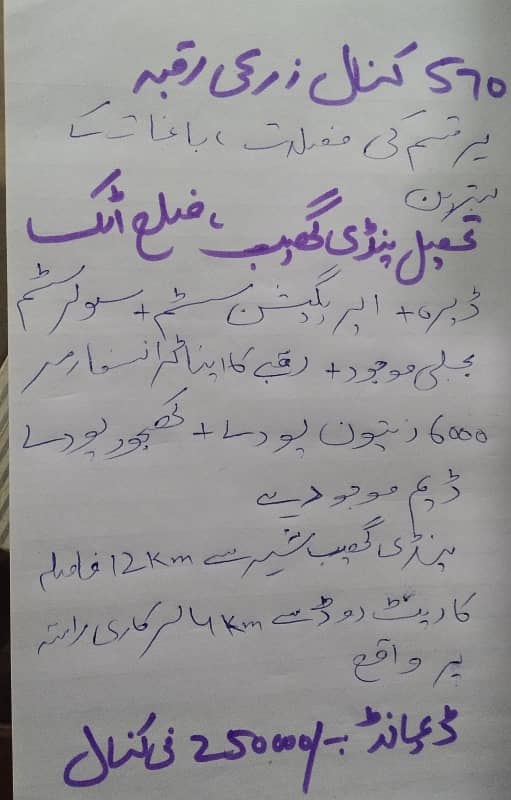 570 کنال زرعی رقبہ
ہر قسم کی فصلات، باغات کا
بہترین
تحصیل پنڈی گھیب، ضلع اٹک
ڈیرہ + ایریگیشن سسٹم + سولر سسٹم
بجلی موجود + رقبے کا اپنا ٹرانسفارمر
6000 زیتون پودے + کھجور پودے
ڈیم موجود ہے
پنڈی گھیب شہر سے 12 Km فاصلہ
کارپٹ روڈ سے 4 Km سرکاری راستہ
پر واقع
ڈیمانڈ :- 250000/- فی کنال